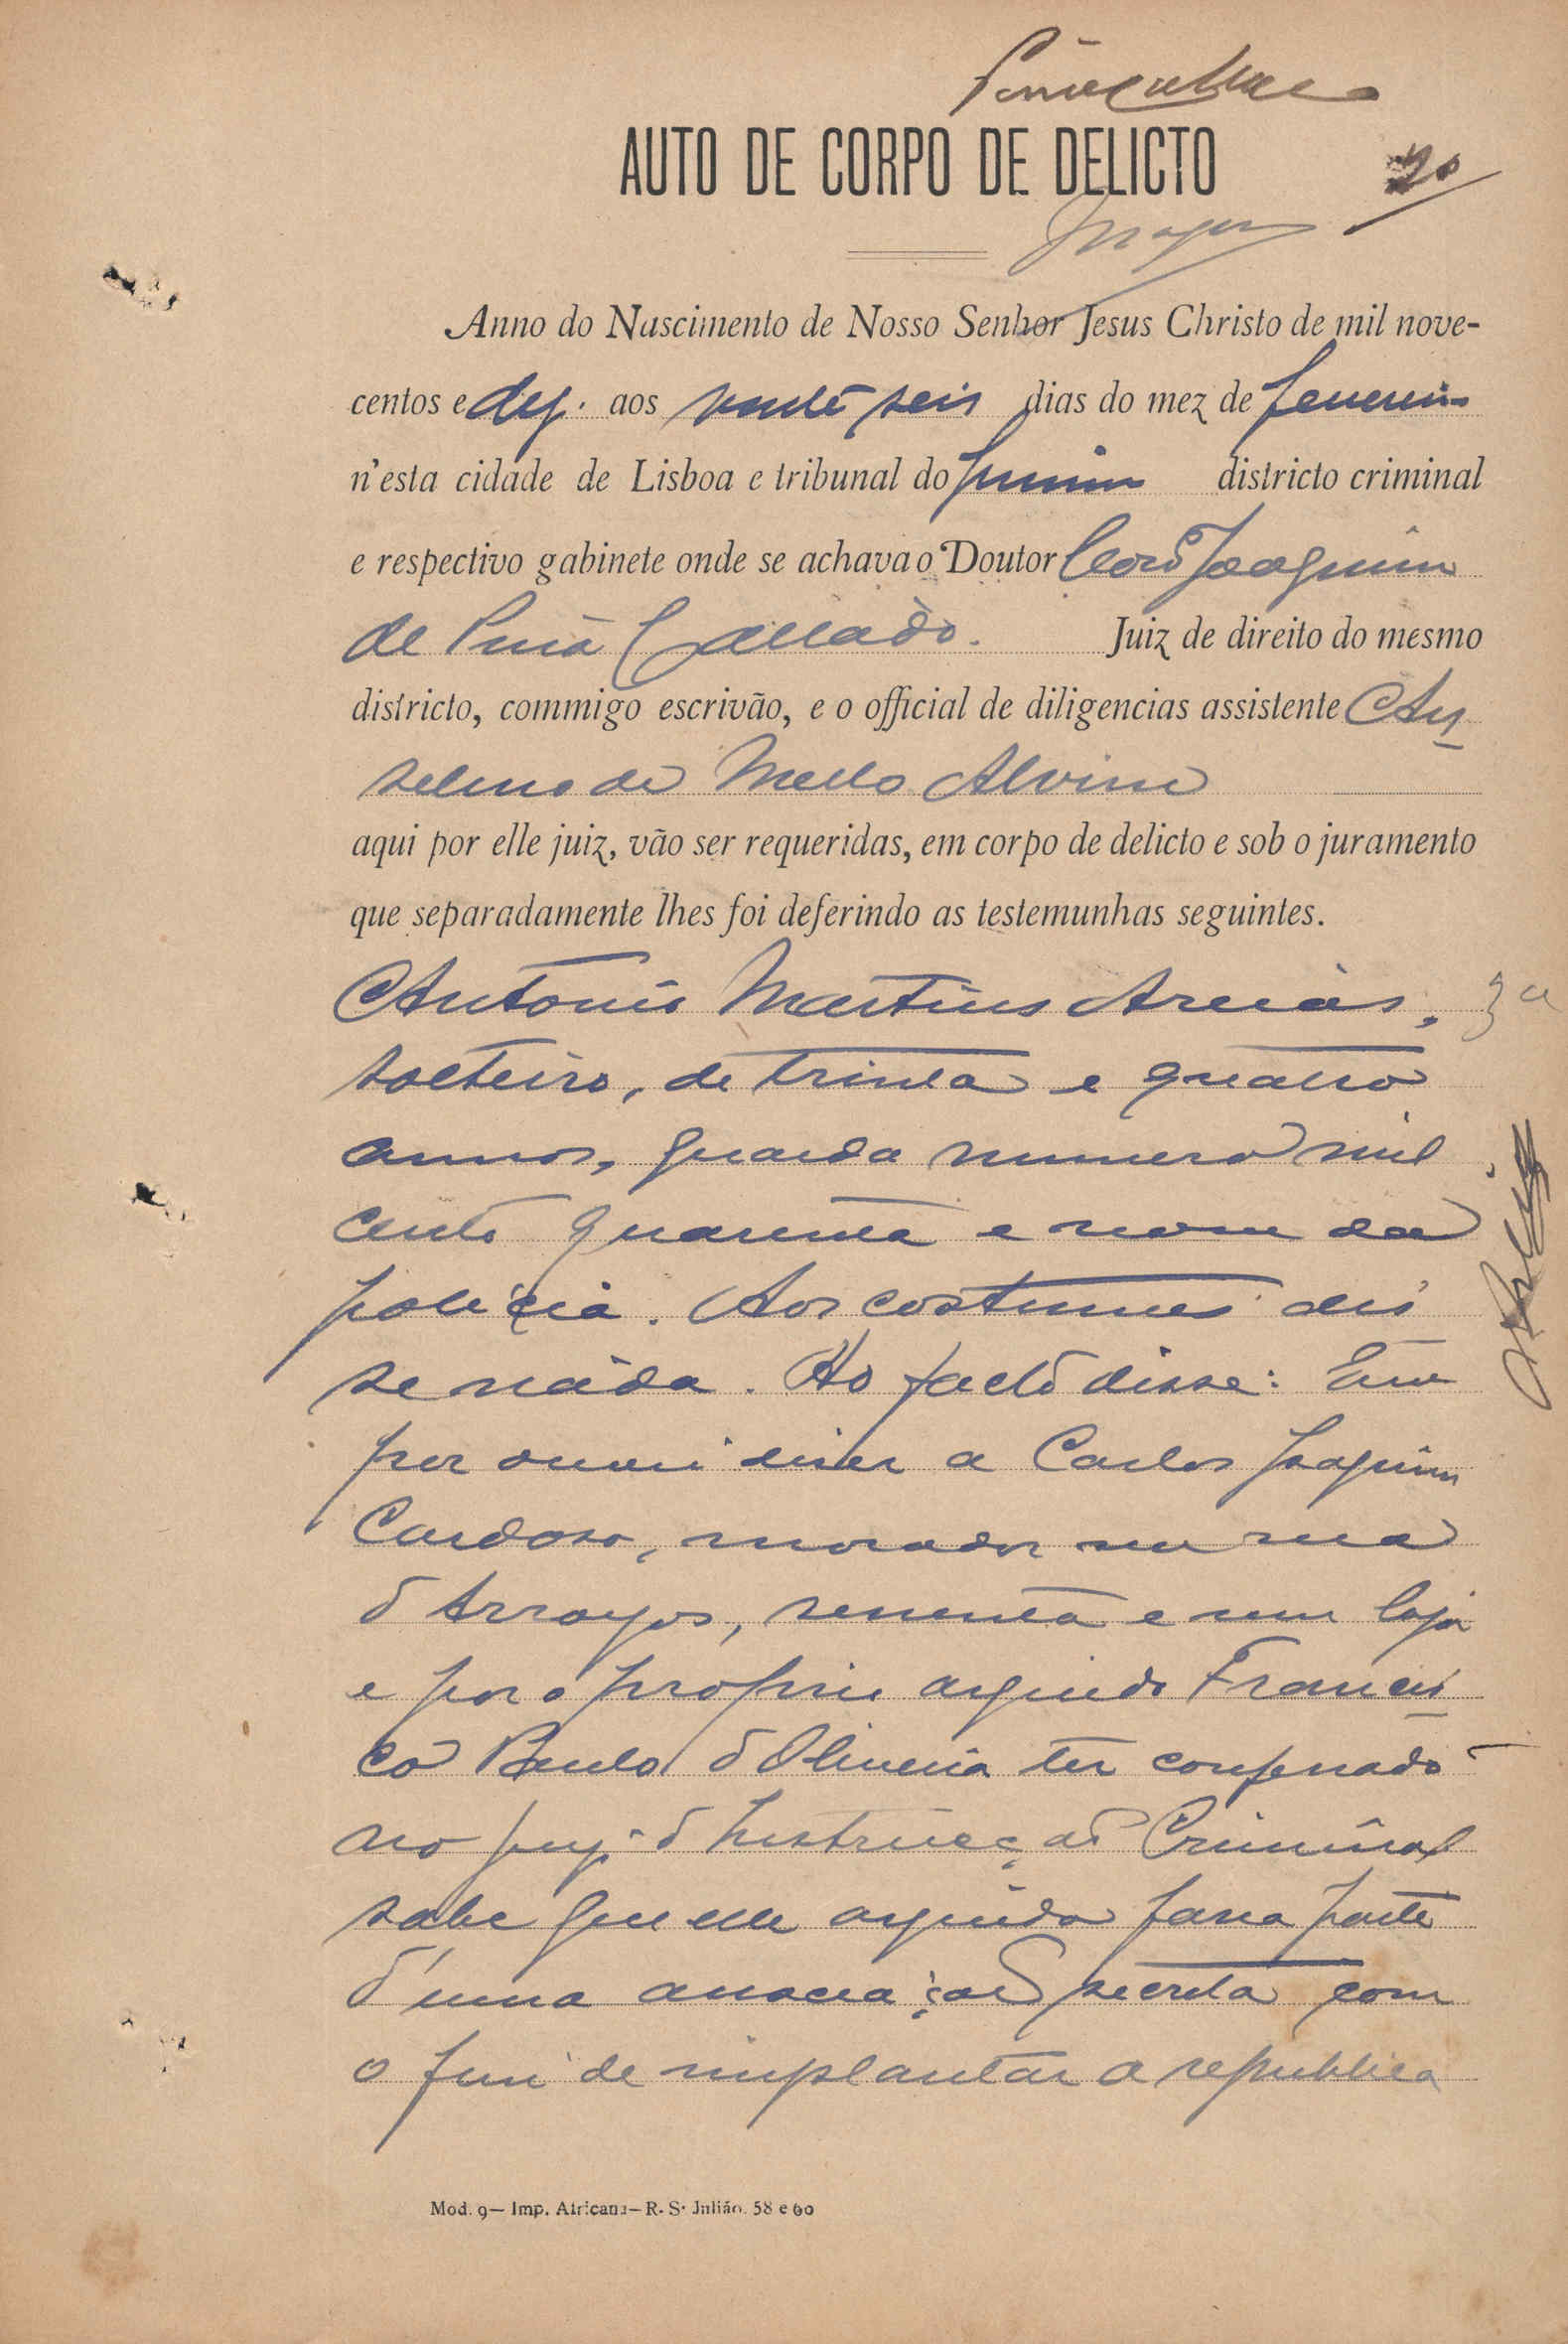 AUTO DE CORPO DE DELICTO
20
Anno do Nascimento de Nosso Senhor Jesus Christo de mil nove-
centos e dez. aos vinte seis dias do mez de fevereiro
n'esta cidade de Lisboa e tribunal do primeiro districto criminal
e respectivo gabinete onde se achava o Doutor Joaquim
de Callado. Juiz de direito do mesmo
districto, commigo escrivão, e o official de diligencias assistente An
selmo de Mello Alvim
aqui por elle juiz, vão ser requeridas, em corpo de delicto e sob o juramento
que separadamente lhes foi deferindo as testemunhas seguintes.
Antonio Martins Areias, 3ª
solteiro, de trinta e quatro
annos, guarda numero mil
cento quarenta e nove da
policia. Aos costumes dis
se nada. Ao facto disse: Que
por ouvir dizer a Carlos Joaquim
Cardoso, morador na rua
d'Arroyos, e um loja
e por o proprio arguido Francis
co Paulo d'Oliveira ter confessado
no juizo d'Instrucção Criminal
sabe que elle arguido fazia parte
d'uma associação secreta com
o fim de implantar a republica
Mod. 9— Imp. Africana—R. S. Julião. 58 e 60